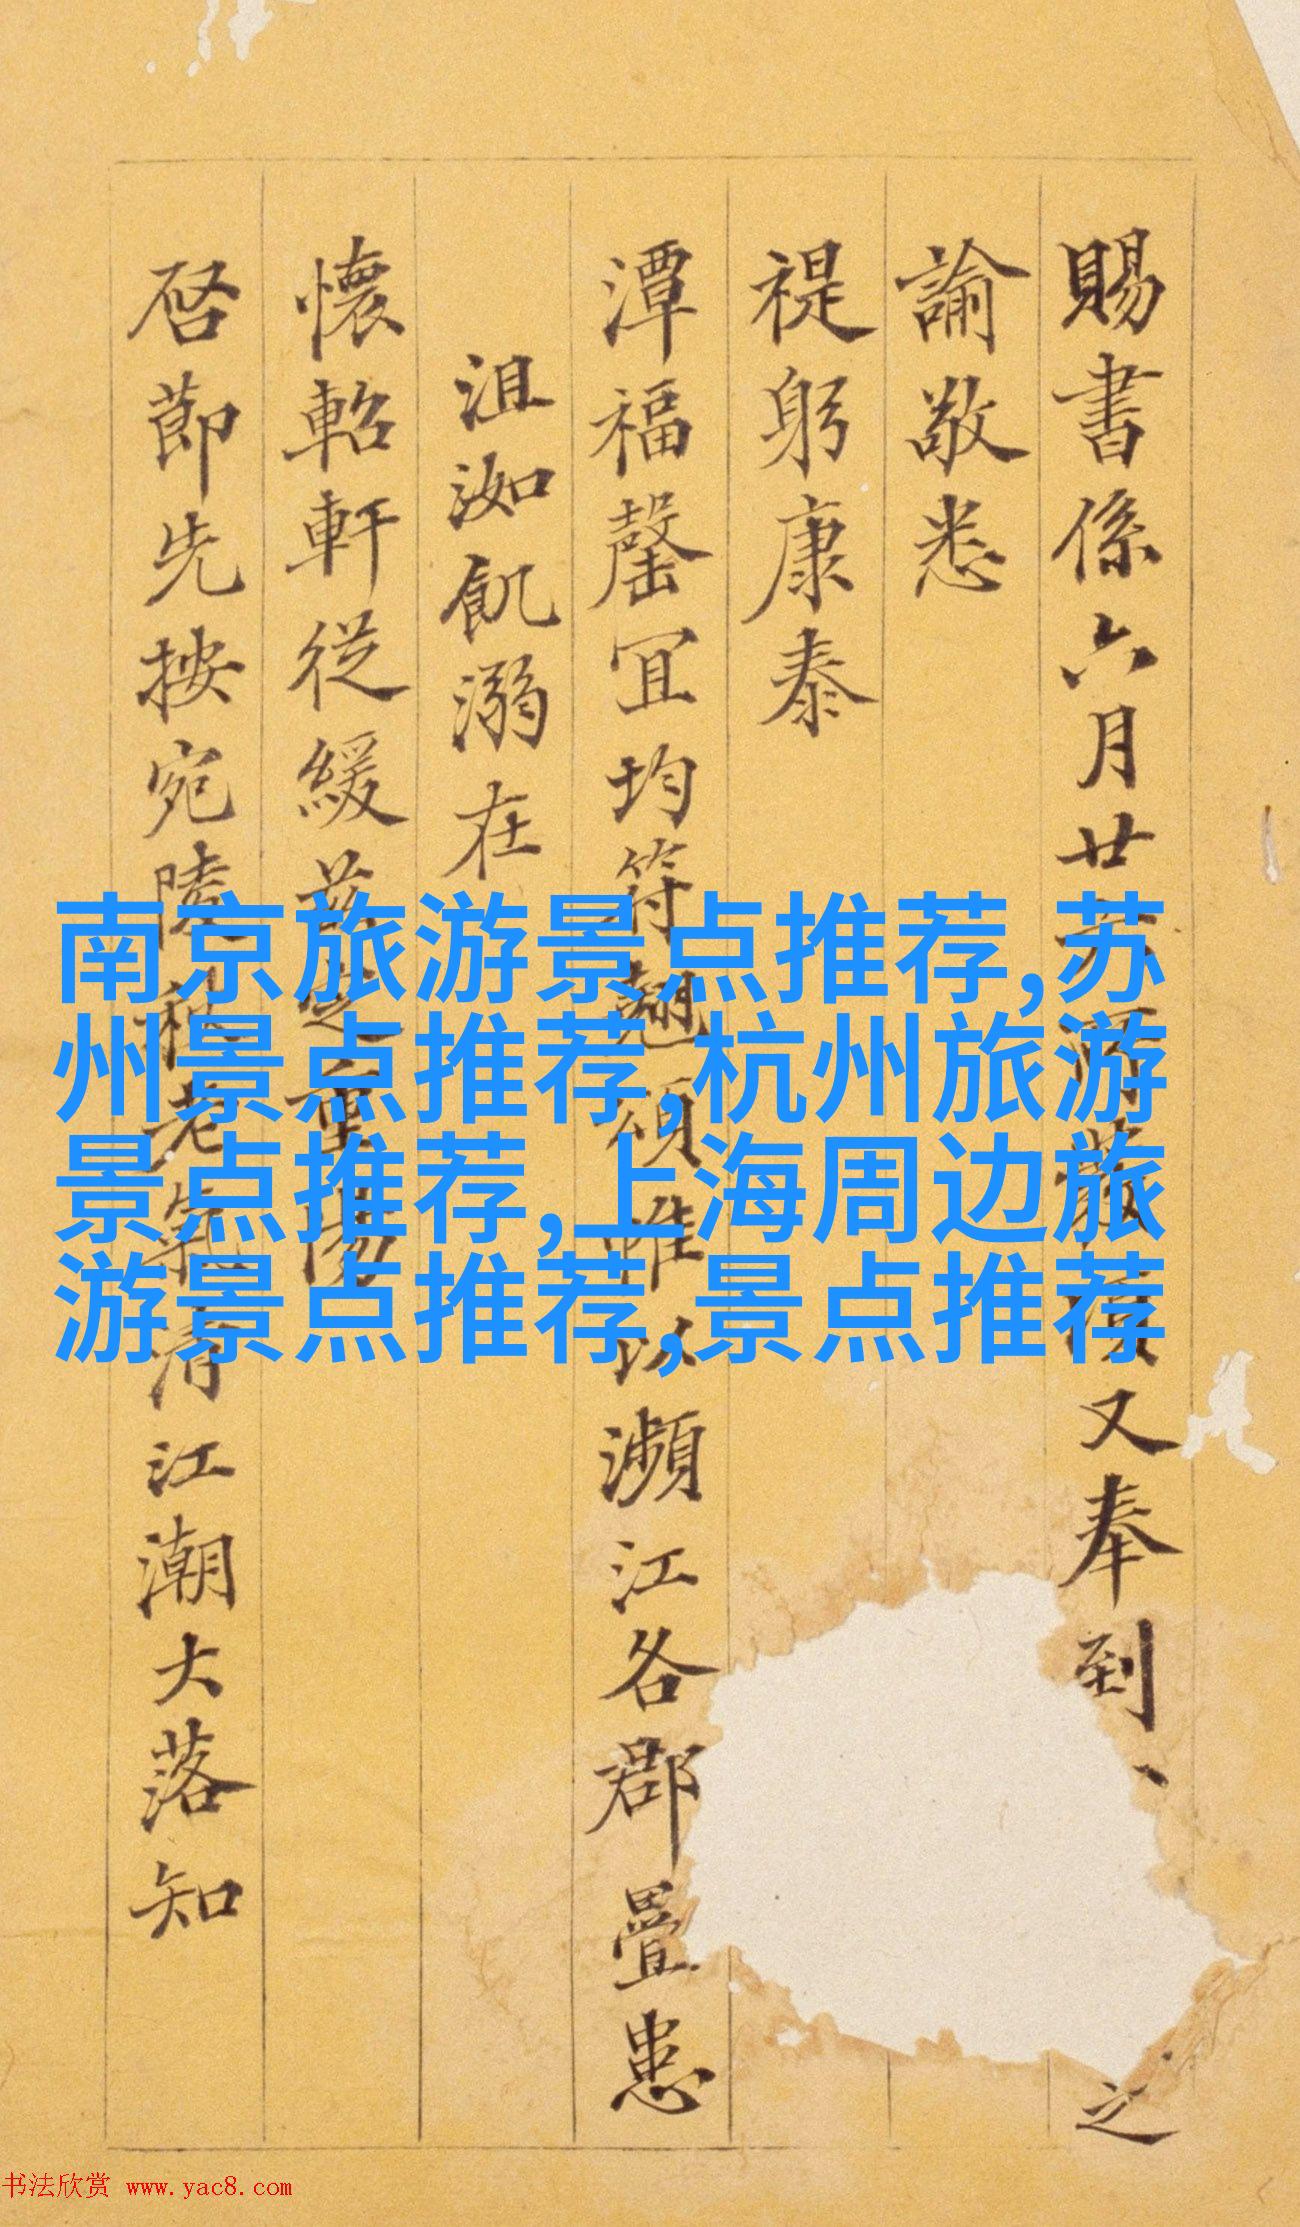 賜書係六月廿
又奉到
之
諭敬悉
禔躬康泰
潭福罄宜均符
頌惟以瀕江各郡疊患
沮洳飢溺在
懷軺軒従緩
重陽
啓莭先按宛陵
老
清江潮大落知
南京旅游景点推荐,苏
州景点推荐,杭州旅游
景点推荐,上海周边旅
游景点推荐,景点推荐
书法欣赏 www.yac8.com